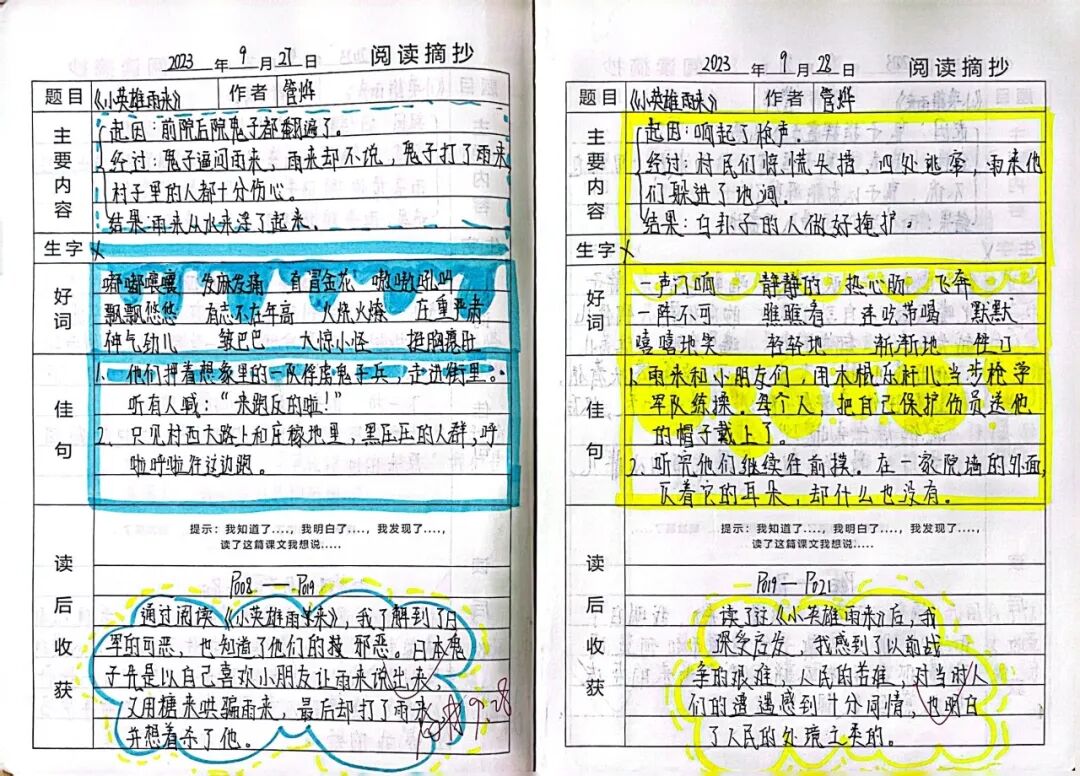 2023 年 9 月 27 日 阅读摘抄
题目 《小英雄雨来》 作者 管烨
主要内容
起因：前院后院鬼子都翻遍了。
经过：鬼子逼问雨来，雨来却不说，鬼子打了雨来
村子里的人都十分伤心。
结果：雨来从水来浮了起来。
生字 X
好词
嘟嘟囔囔 发麻发痛 直冒金花 嗷嗷吼叫
飘飘悠悠 有志不在年高 火烧火燎 庄重严肃
神气劲儿 皱巴巴 大惊小怪 挺胸裹肚
佳句
1、他们押着想象里的一队俘虏鬼子兵，走进街里。
听有人喊：“来跑反的啦！”
2、只见村西大路上和庄稼地里，黑压压的人群，呼
啦呼啦往这边跑。
读后收获
提示：我知道了....，我明白了....，我发现了....，
读了这篇课文我想说.....
P008 — P019
通过阅读《小英雄雨来》，我了解到了日
军的可恶，也知道了他们的 邪恶。日本鬼
子先是以自己喜欢小朋友让雨来说出来，
又用糖来哄骗雨来，最后却打了雨来，
并想着杀了他。
9.28
2023 年 9 月 28 日 阅读摘抄
题目 《小英雄雨来》 作者 管烨
主要内容
起因：响起了枪声。
经过：村民们惊慌失措，四处逃窜，雨来他
们躲进了地洞。
结果：白邦子的人做好掩护。
生字 X
好词
一声门响 静静的 热心肠 飞奔
一阵不可 瞧瞧看 连吹带喝 默默
嘻嘻地笑 轻轻地 渐渐地
佳句
1、雨来和小朋友们，用木棍乐杆儿当步枪学
军队练操。每个人，把自己保护伤员送他
的帽子戴上了。
2、听完他们继续往前摸。在一家院墙的外面，
着它的耳朵，却什么也没有。
读后收获
提示：我知道了....，我明白了....，我发现了....，
读了这篇课文我想说.....
P019 — P021
读了这《小英雄雨来》后，我
深受启发，我感到了以前战
争的艰难，人民的苦难，对当时人
们的遭遇感到十分同情，也明白
了人民的处境之类的。